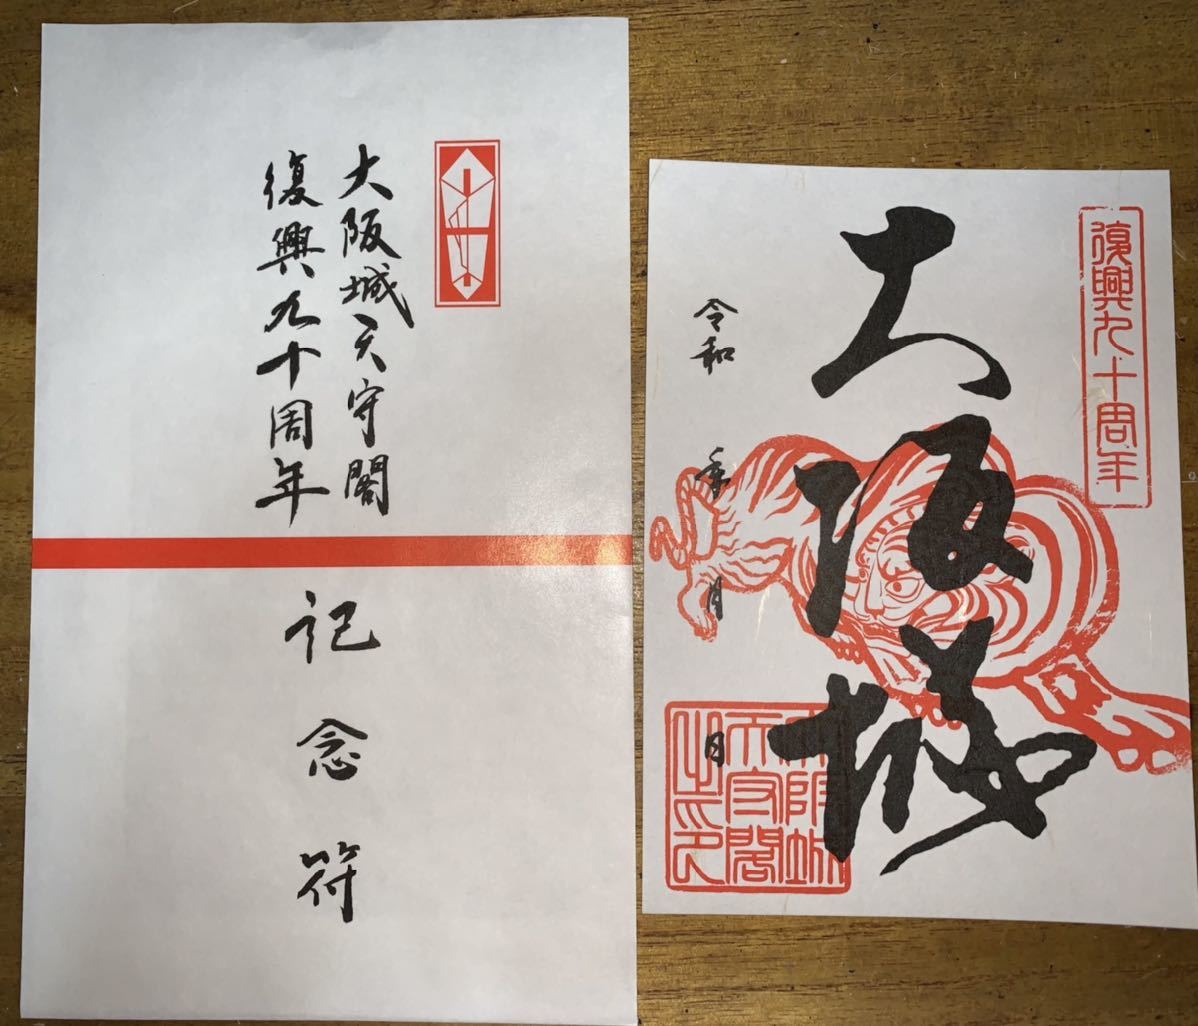 大阪城天守閣
復興九十周年
記念符
復興九十周年
大阪城
令和 年 月 日
大阪城
天守閣
之印